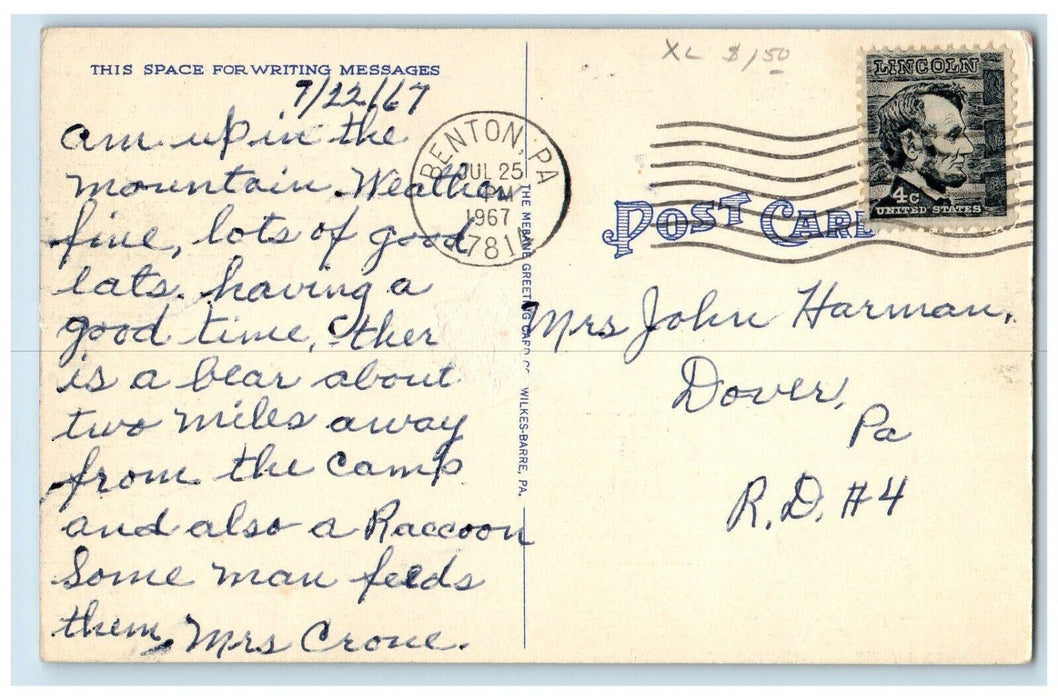 THIS SPACE FOR WRITING MESSAGES
7/22/67
am up in the
mountain. Weather
fine, lots of good
eats. having a
good time, ther
is a bear about
two miles away
from the camp
and also a Raccoon
Some man feeds
them. Mrs Crone.
THE MEBANE GREETING CARD CO. WILKES-BARRE, PA.
XL $1.50
BENTON, PA
JUL 25
PM
1967
LINCOLN
4c
UNITED STATES
POST CARD
Mrs John Harman,
Dover,
Pa
R.D. #4